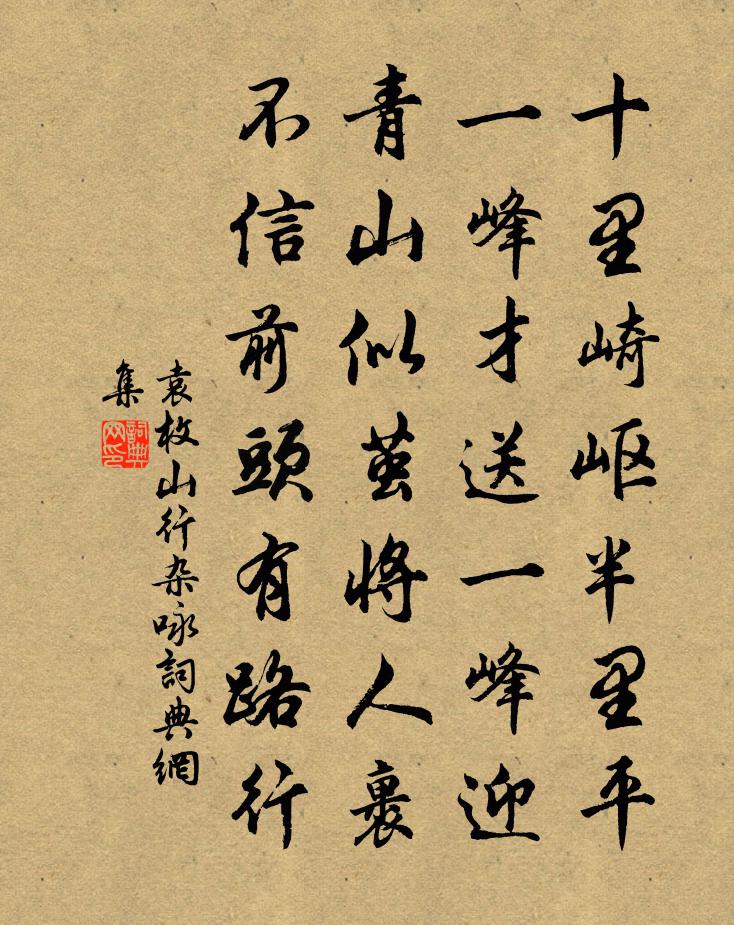 十里崎岖半里平
一峰才送一峰迎
青山似茧将人裹
不信前頭有路行
袁枚山行杂咏詞典網
集
詞典
网印